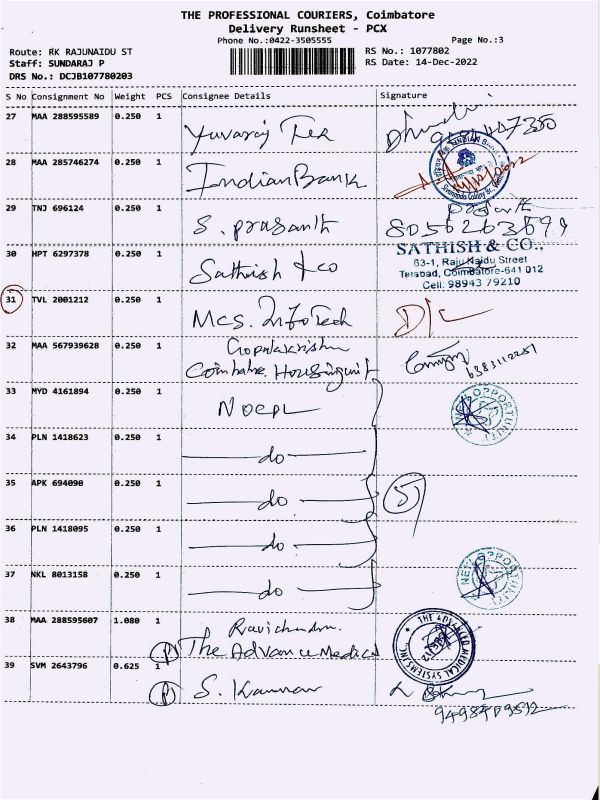 THE PROFESSIONAL COURIERS, Coimbatore
Delivery Runsheet - PCX
Phone No.:0422-3505555
Page No.:3
Route: RK RAJUNAIDU ST
RS No.: 1077802
Staff: SUNDARAJ P
RS Date: 14-Dec-2022
DRS No.: DCJB107780203
S No Consignment No Weight PCS Consignee Details Signature
27 MAA 288595589 0.250 1 Yuvaraj Tex
28 MAA 285746274 0.250 1 Indian Bank
29 TNJ 696124 0.250 1 S. prasanth
8056263699
30 HPT 6297378 0.250 1 Sathish & co
SATHISH & CO.,
63-1, Raju Naidu Street
Tatabad, Coimbatore-641 012
Cell: 98943 79210
31 TVL 2001212 0.250 1 Mcs. Infotech D/L
32 MAA 567939628 0.250 1 Gopalakrishn
Coimbatore Housing unit
6383112251
33 MYD 4161894 0.250 1 NOCPL
NEW OPPORTUNITY
34 PLN 1418623 0.250 1 do
35 APK 694090 0.250 1 do 5
36 PLN 1418095 0.250 1 do
37 NKL 8013158 0.250 1 do
NEW OPPORTUNITY
38 MAA 288595607 1.080 1 Ravichandu.
(P) The Advance Medical
THE ADVANCED MEDICAL SYSTEMS INC
39 SVM 2643796 0.625 1
(P) S. Kannan